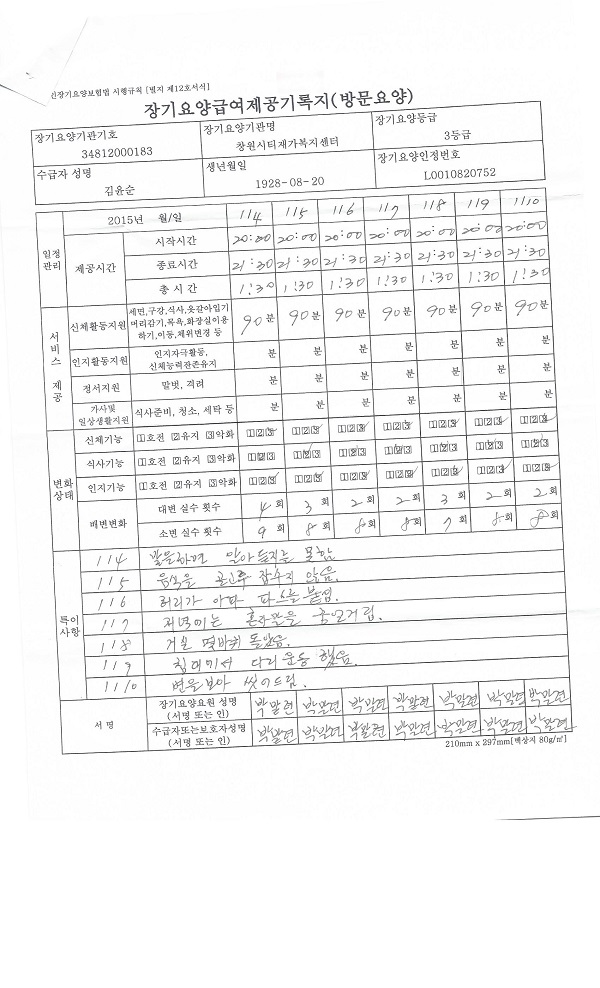 인장기요양보험법 시행규칙 [별지 제12호서식]
장기요양급여제공기록지(방문요양)
장기요양기관기호 장기요양기관명 장기요양등급
34812000183 창원시티재가복지센터 3등급
수급자 성명 생년월일 장기요양인정번호
김윤순 1928-08-20 L0010820752
일정관리 2015년 월/일 1/4 1/5 1/6 1/7 1/8 1/9 1/10
제공시간 시작시간 20:00 20:00 20:00 20:00 20:00 20:00 20:00
종료시간 21:30 21:30 21:30 21:30 21:30 21:30 21:30
총 시간 1:30 1:30 1:30 1:30 1:30 1:30 1:30
서비스 제공
신체활동지원 세면,구강,식사,옷갈아입기 머리감기,목욕,화장실이용 하기,이동,체위변경 등 90분 90분 90분 90분 90분 90분 90분
인지활동지원 인지자극활동, 신체능력잔존유지 분 분 분 분 분 분 분
정서지원 말벗, 격려 분 분 분 분 분 분 분
가사및 일상생활지원 식사준비, 청소, 세탁 등 분 분 분 분 분 분 분
변화상태
신체기능 1호전 2유지 3악화 123 123 123 123 123 123 123
식사기능 1호전 2유지 3악화 123 123 123 123 123 123 123
인지기능 1호전 2유지 3악화 123 123 123 123 123 123 123
배변변화 대변 실수 횟수 4회 3회 2회 2회 3회 2회 2회
소변 실수 횟수 9회 8회 8회 8회 7회 8회 8회
특이사항
1/4 말을하면 알아듣지를 못함
1/5 음식을 골고루 잡수지 않음.
1/6 허리가 아파 파스를 붙임.
1/7 저녁에는 혼자말을 중얼거림.
1/8 거실 몇바퀴 돌았음.
1/9 침대에서 다리운동 했음.
1/10 변을보아 씻어드림.
서 명
장기요양요원 성명 (서명 또는 인) 박말련 박말련 박말련 박말련 박말련 박말련 박말련
수급자또는보호자성명 (서명 또는 인) 박말련 박말련 박말련 박말련 박말련 박말련 박말련
210mm x 297mm[백상지 80g/㎡]